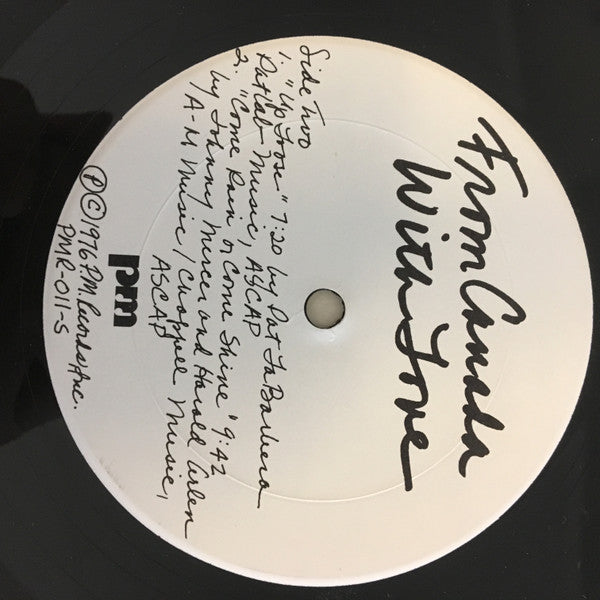 From Canada
With Love
Side Two
1. "Up Loose" 7:20 by Pat LaBarbera
PatLab Music, ASCAP
2. "Come Rain or Come Shine" 9:42
by Johnny Mercer and Harold Arlen
/A-M Music / Chappell Music,
ASCAP
pm
Ⓟ©1976 P.M. Records, Inc.
PMR-011-S